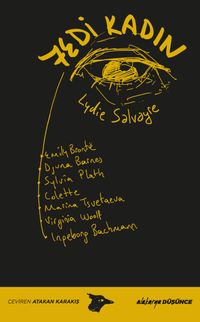 7EDİ KADIN
Lydie Salvayre
Emily Brontë
Djuna Barnes
Sylvia Plath
Colette
Marina Tsvetaeva
Virginia Woolf
Ingeborg Bachmann
ÇEVİREN ATAKAN KARAKIŞ
DÜŞÜNCE